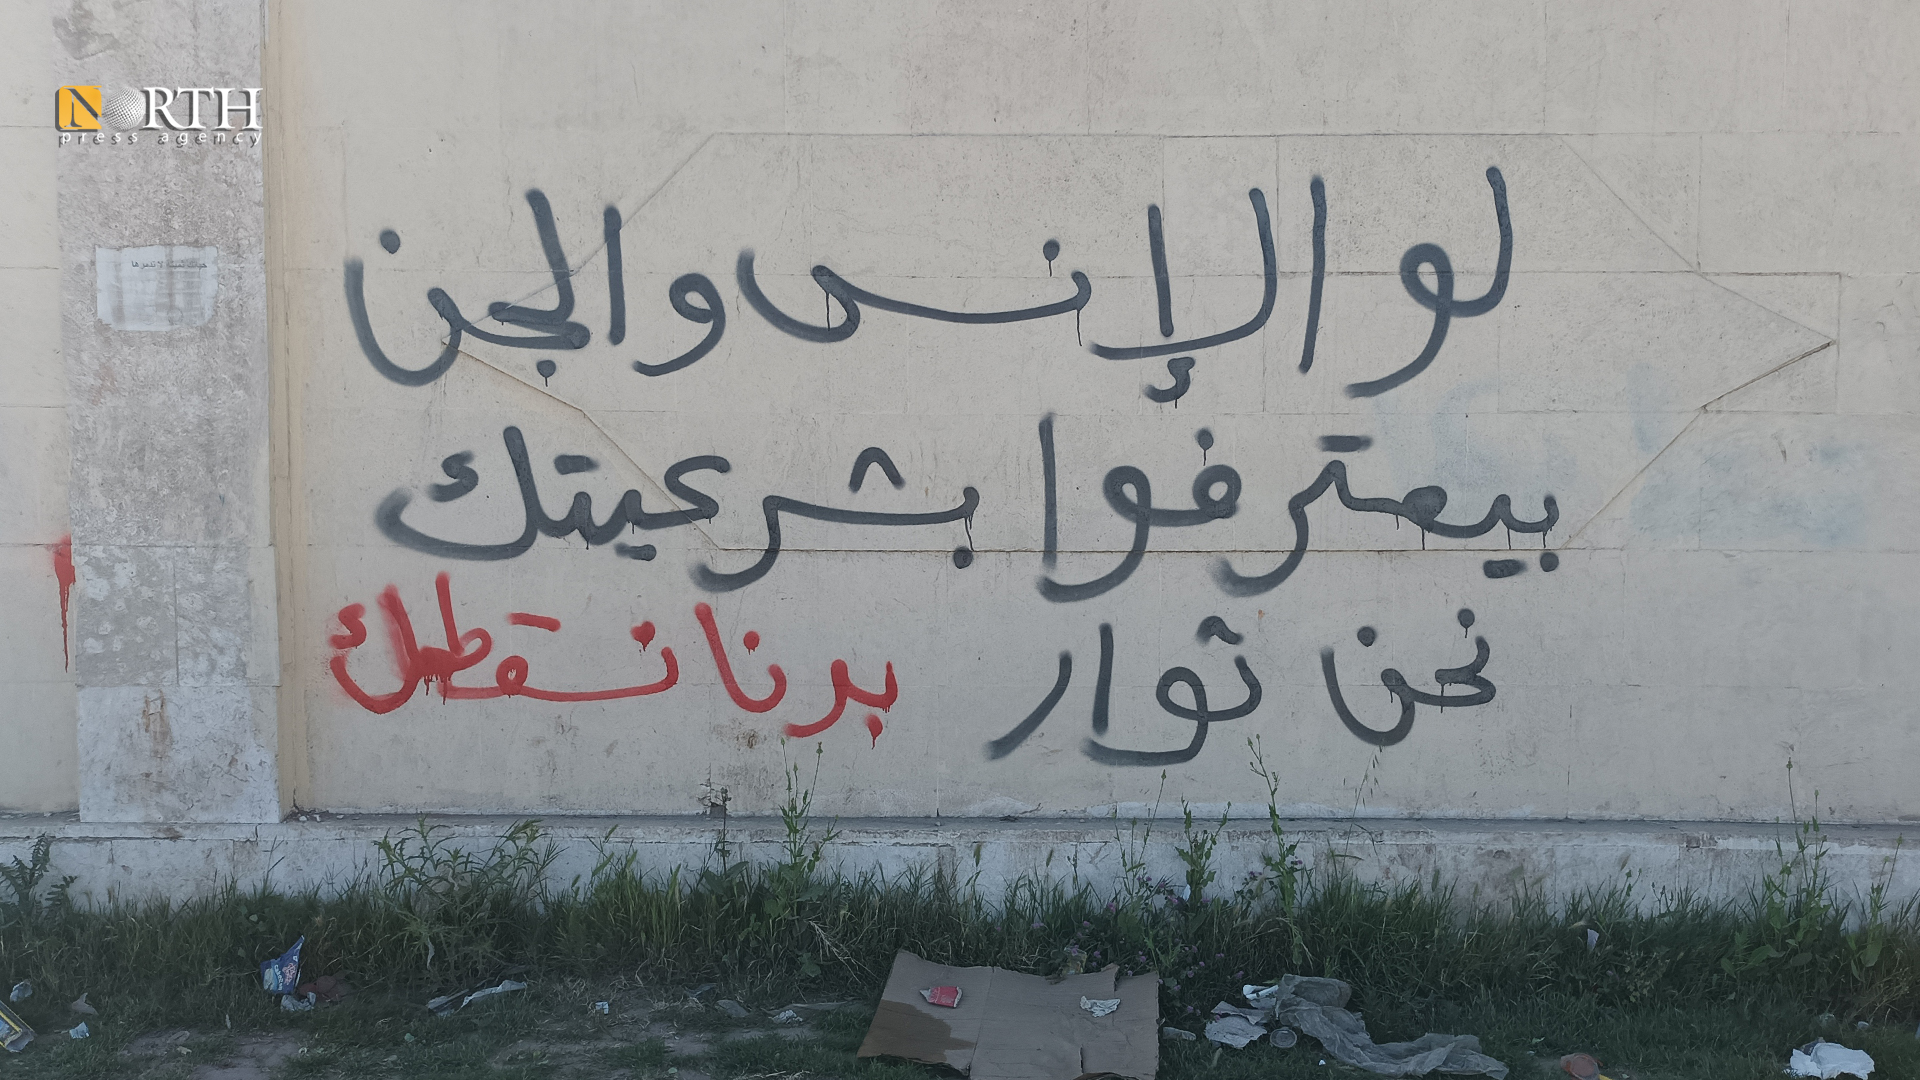 NORTH
press agency
لو الإنس والجن
بيعترفوا بشرعيتك
نحن ثوار بدنا نسقطك